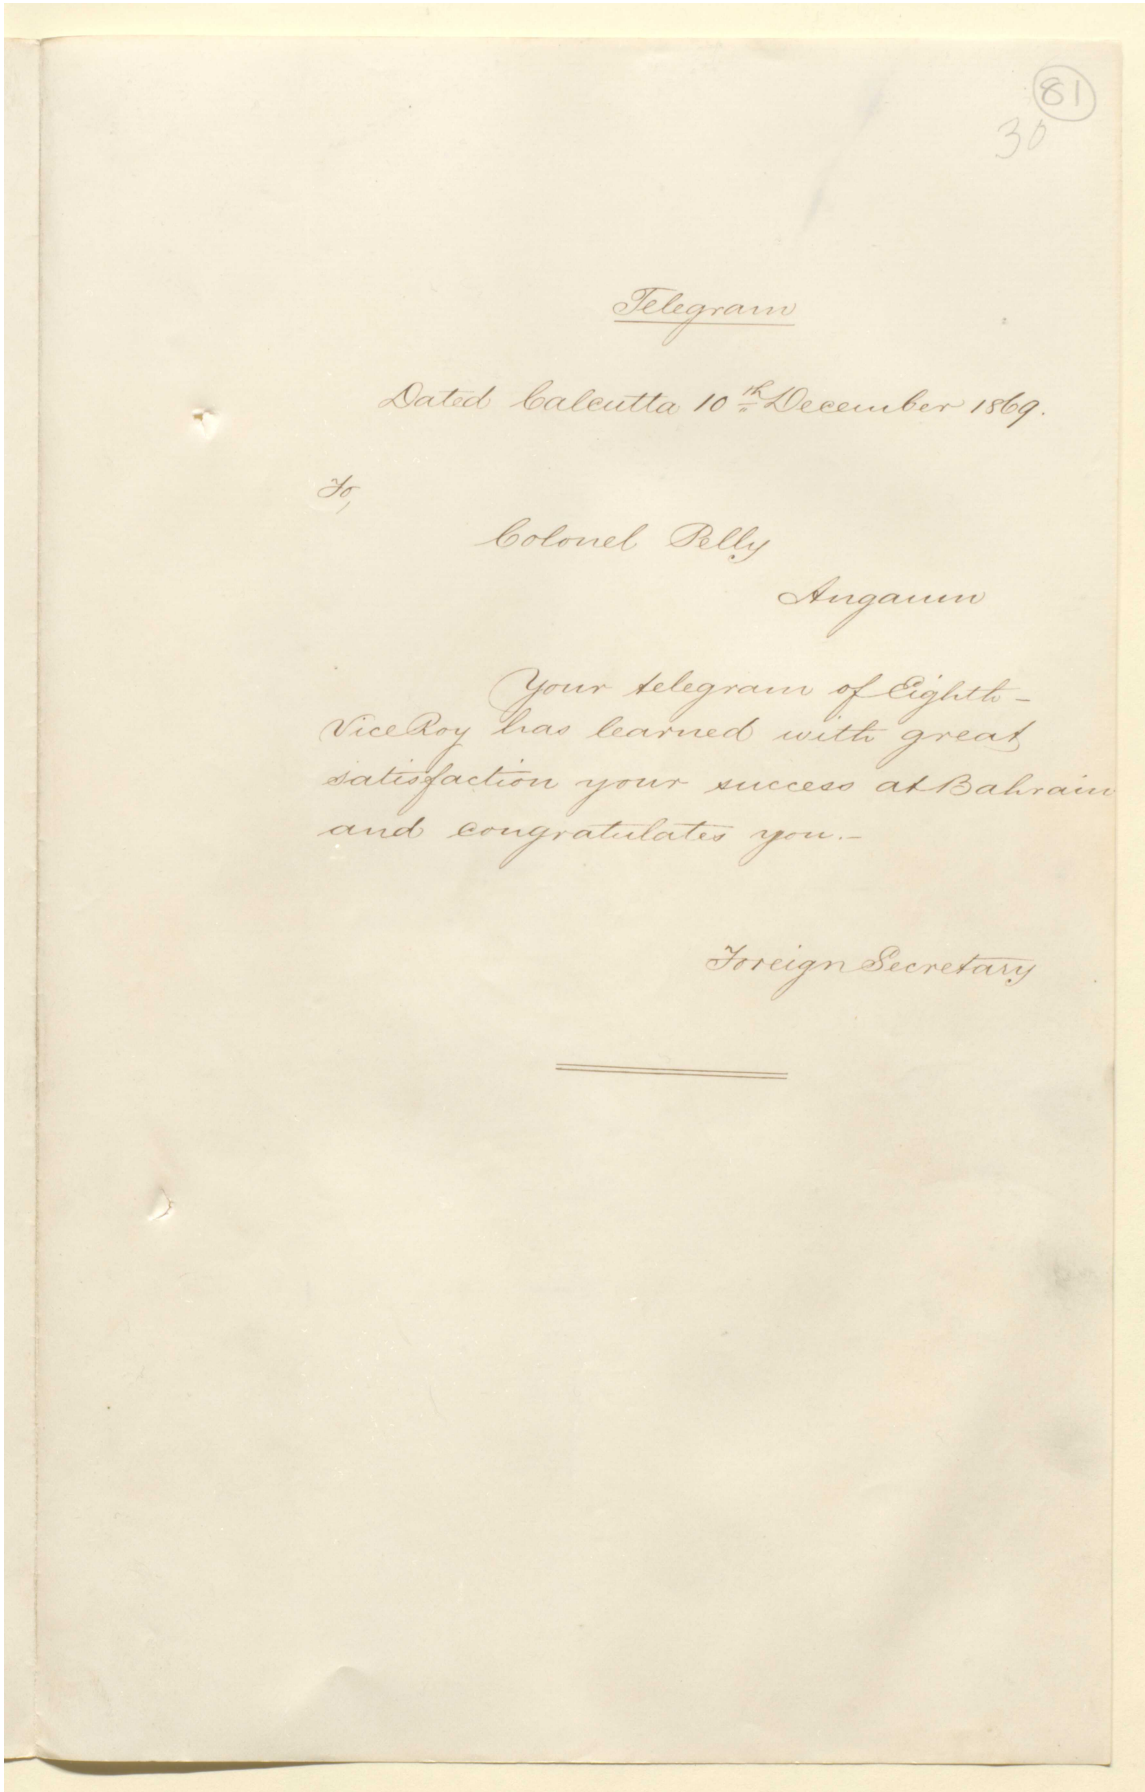 81
30
Telegram
Dated Calcutta 10th December 1869.
To,
Colonel Pelly
Angaum
Your telegram of Eighth –
ViceRoy has learned with great
satisfaction your success at Bahrain
and congratulates you. –
Foreign Secretary